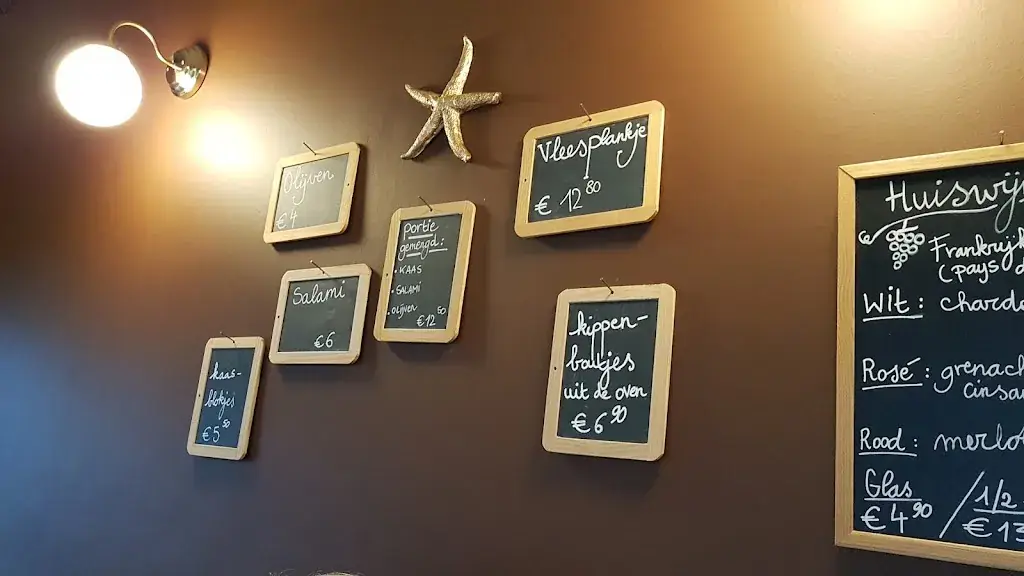 Olijven
€ 4
Salami
€ 6
kaas-
blokjes
€ 5 50
portie
gemengd:
• KAAS
• SALAMI
• OLIJVEN
€ 12 50
Vleesplankje
€ 12 80
kippen-
boutjes
uit de oven
€ 6 90
Huiswij
Frankrijk
(pays d
Wit: chardo
Rosé: grenach
cinsau
Rood: merlo
Glas / 1/2
€ 4 90 € 13